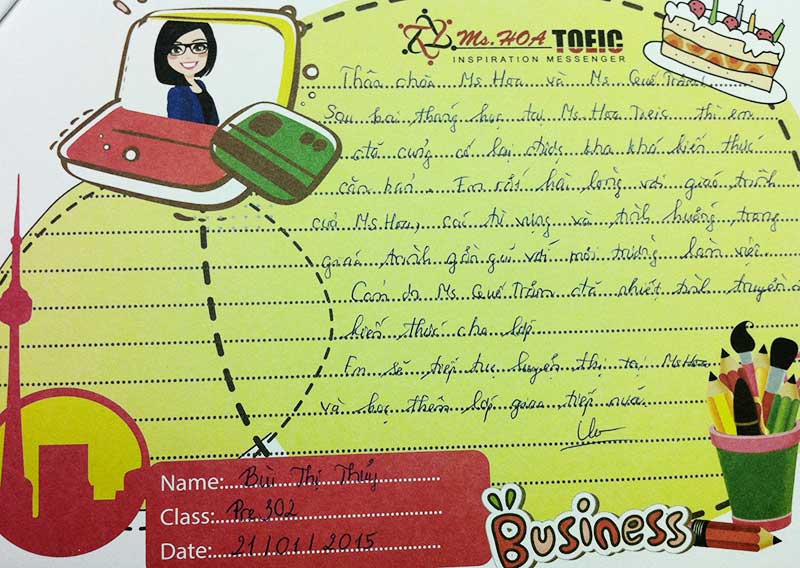 Ms.HOA TOEIC
INSPIRATION MESSENGER
Thân chào Ms Hoa và Ms Quế Trâm!
Sau ba tháng học tại Ms Hoa Toeic thì em
đã củng cố lại được kha khá kiến thức
căn bản. Em rất hài lòng với giáo trình
của Ms Hoa, các từ vựng và tình huống trong
giáo trình gần gũi với môi trường làm việc.
Cám ơn Ms Quế Trâm đã nhiệt tình truyền
kiến thức cho lớp.
Em sẽ tiếp tục luyện thi tại Ms Hoa
và học thêm lớp giao tiếp nữa.
Name: Bùi Thị Thủy
Class: Pre 302
Date: 21/01/2015
BUSINESS